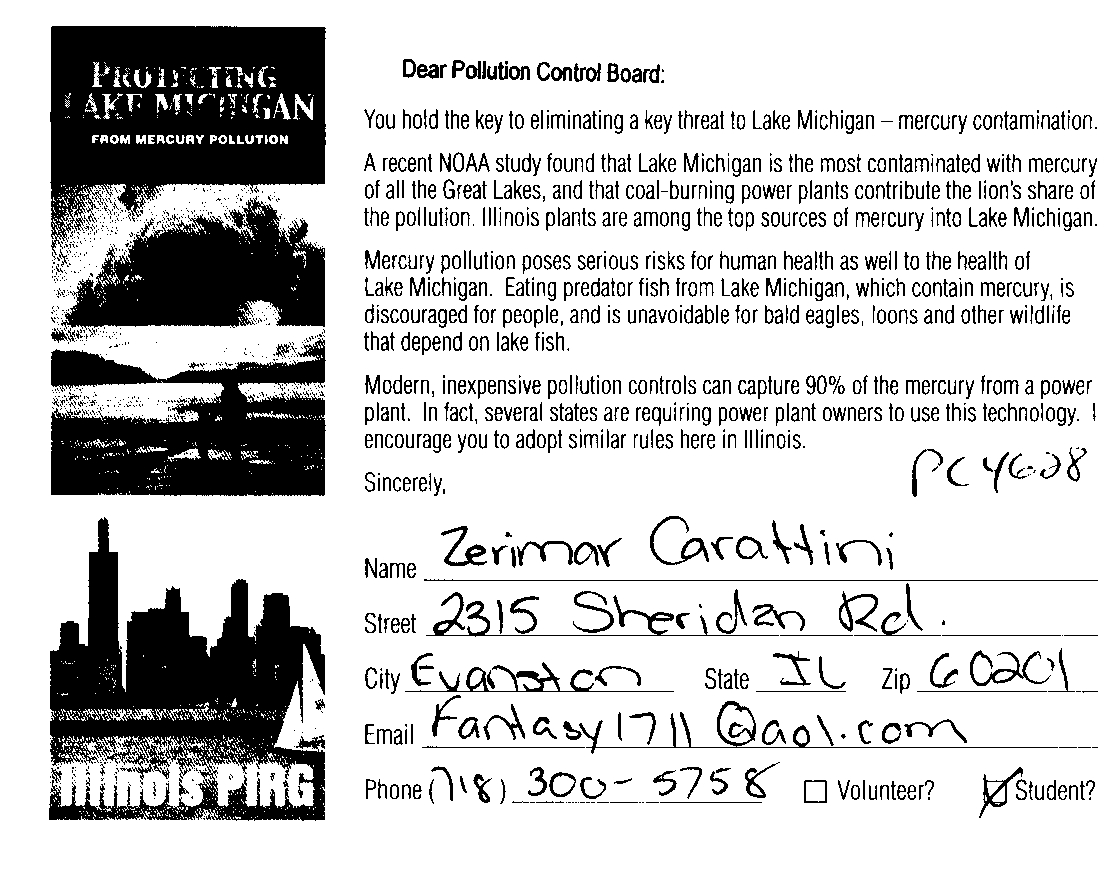 PROTECTING
LAKE MICHIGAN
FROM MERCURY POLLUTION
Illinois PIRG
Dear Pollution Control Board:
You hold the key to eliminating a key threat to Lake Michigan – mercury contamination.
A recent NOAA study found that Lake Michigan is the most contaminated with mercury
of all the Great Lakes, and that coal-burning power plants contribute the lion's share of
the pollution. Illinois plants are among the top sources of mercury into Lake Michigan.
Mercury pollution poses serious risks for human health as well to the health of
Lake Michigan. Eating predator fish from Lake Michigan, which contain mercury, is
discouraged for people, and is unavoidable for bald eagles, loons and other wildlife
that depend on lake fish.
Modern, inexpensive pollution controls can capture 90% of the mercury from a power
plant. In fact, several states are requiring power plant owners to use this technology. I
encourage you to adopt similar rules here in Illinois.
PC 4628
Sincerely,
Name Zerimar Carattini
Street 2315 Sheridan Rd.
City Evanston State IL Zip 60201
Email Fantasy1711@aol.com
Phone (718) 300-5758 Volunteer? Student?